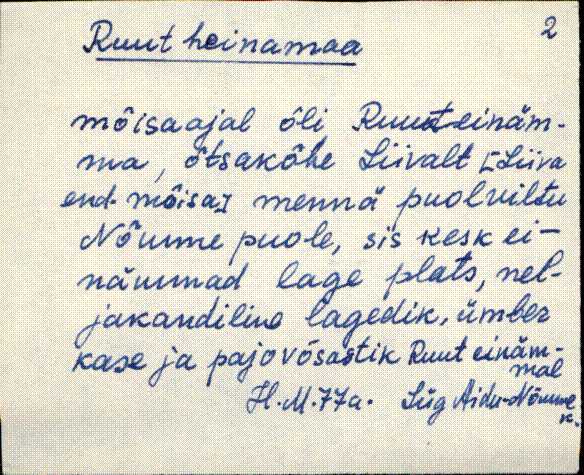 2
Ruut heinamaa
mõisaajal õli Ruuteinäm-
ma, õtsakõhe Liivalt [Liiva
end. mõisa] mennä puolviltu
Nõmme puole, sis kesk ei-
nämmad lage plats, nel-
jakandiline lagedik, ümber
kase ja pajovõsastik Ruut einäm-
mal
H. M. 77a. Lüg Aidu-Nõmme
k.